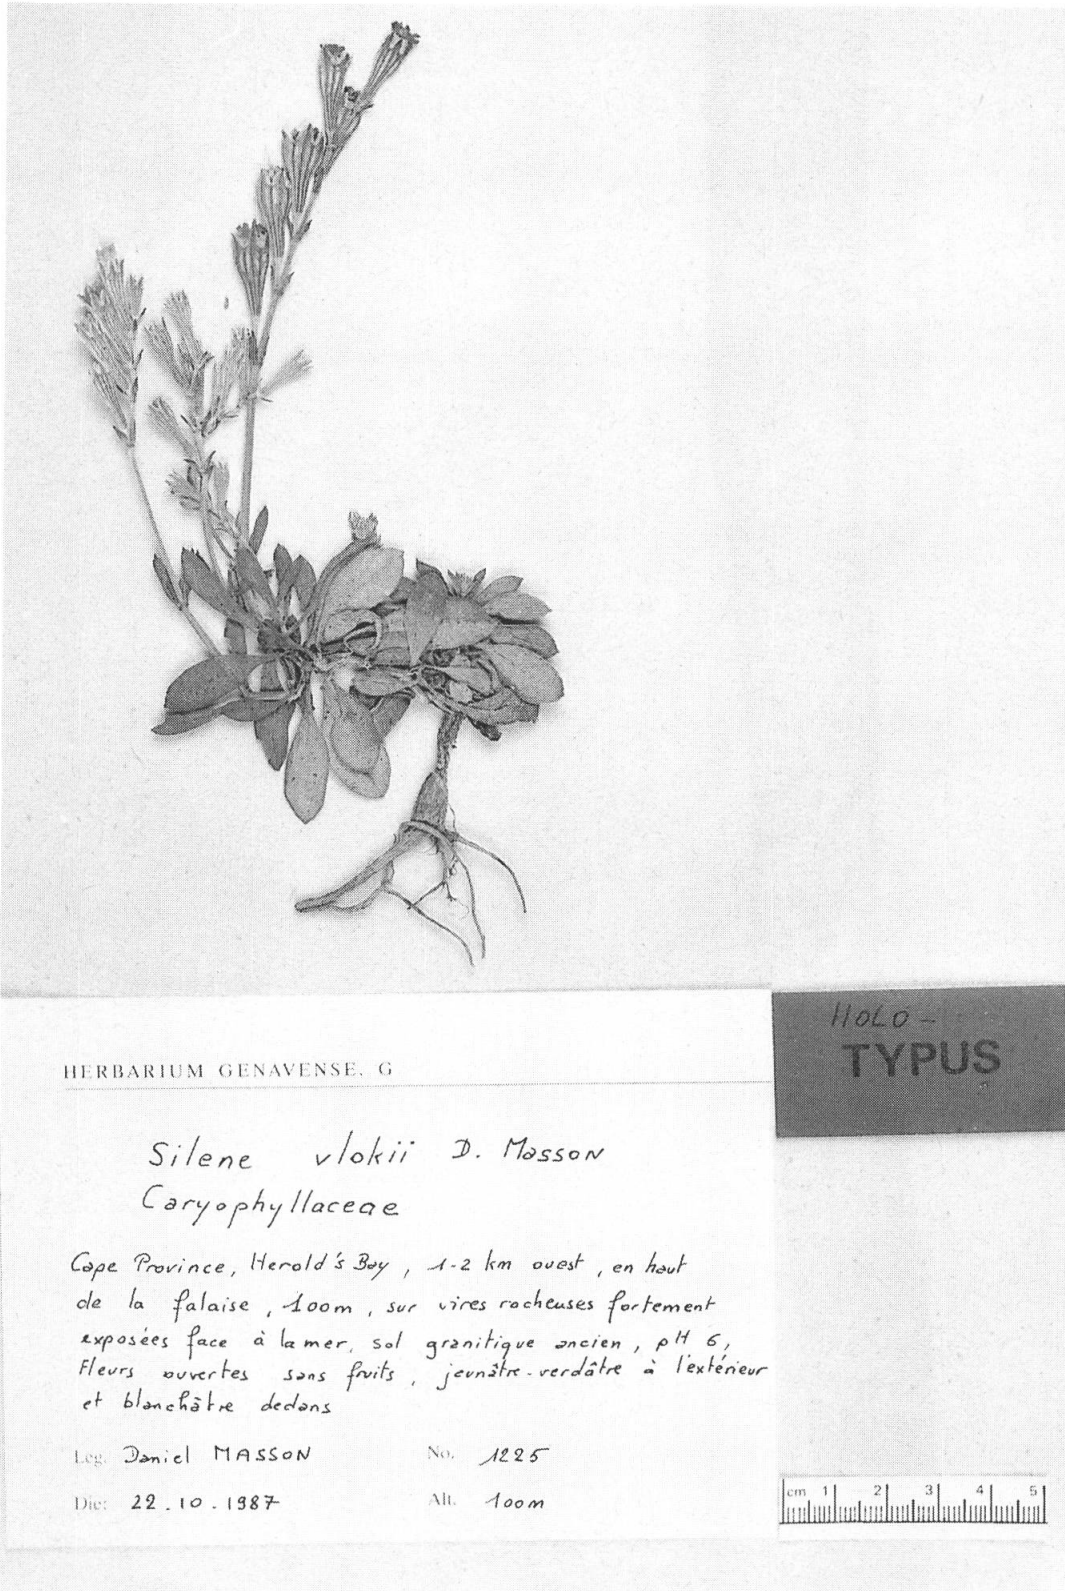 HOLO-
TYPUS
HERBARIUM GENAVENSE, G
Silene vlokii D. Masson
Caryophyllaceae
Cape Province, Herold's Bay, 1-2 km ouest, en haut
de la falaise, 100m, sur vires rocheuses fortement
exposées face à la mer, sol granitique ancien, pH 6,
Fleurs ouvertes sans fruits, jaunâtre-verdâtre à l'extérieur
et blanchâtre dedans
Leg. Daniel MASSON No. 1225
Die: 22.10.1987 Alt. 100m
cm 1 2 3 4 5